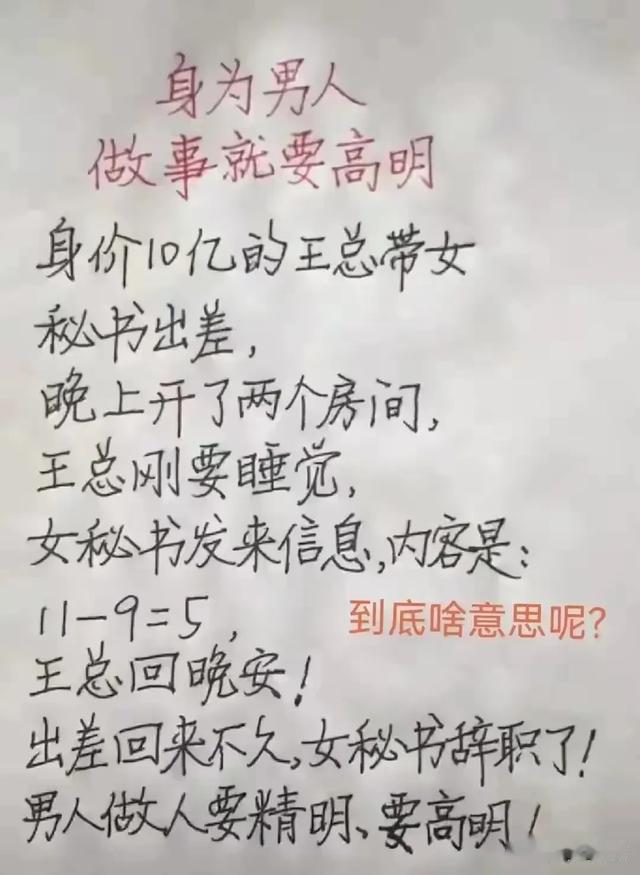 身为男人
做事就要高明
身价10亿的王总带女
秘书出差,
晚上开了两个房间,
王总刚要睡觉,
女秘书发来信息,内容是:
11-9=5,
到底啥意思呢?
王总回晚安!
出差回来不久,女秘书辞职了!
男人做人要精明、要高明!